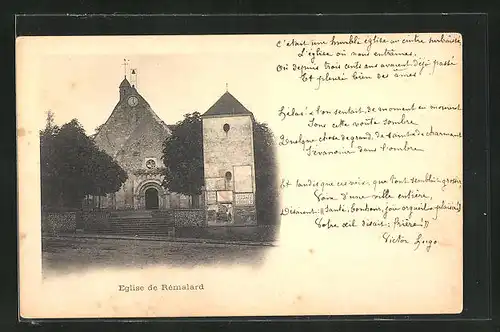 C'était une humble église au cintre surbaissé
L'église où nous entrâmes,
Où depuis trois cents ans avaient déjà passé
Et pleuré bien des âmes.
Hélas! l'on sentait, de moment en moment
Sous cette voûte sombre
Quelque chose de grand, de saint et de charmant
S'évanouir dans l'ombre
Et tandis que ces voix, que tout semblait grossir
Voix d'une ville entière,
Disaient: Santé, bonheur, joie, orgueil et plaisir!
Votre œil disait: prière!"
Victor Hugo
Eglise de Rémalard